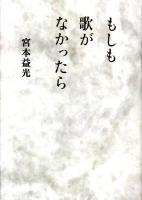 もしも
歌が
なかったら
宮本益光